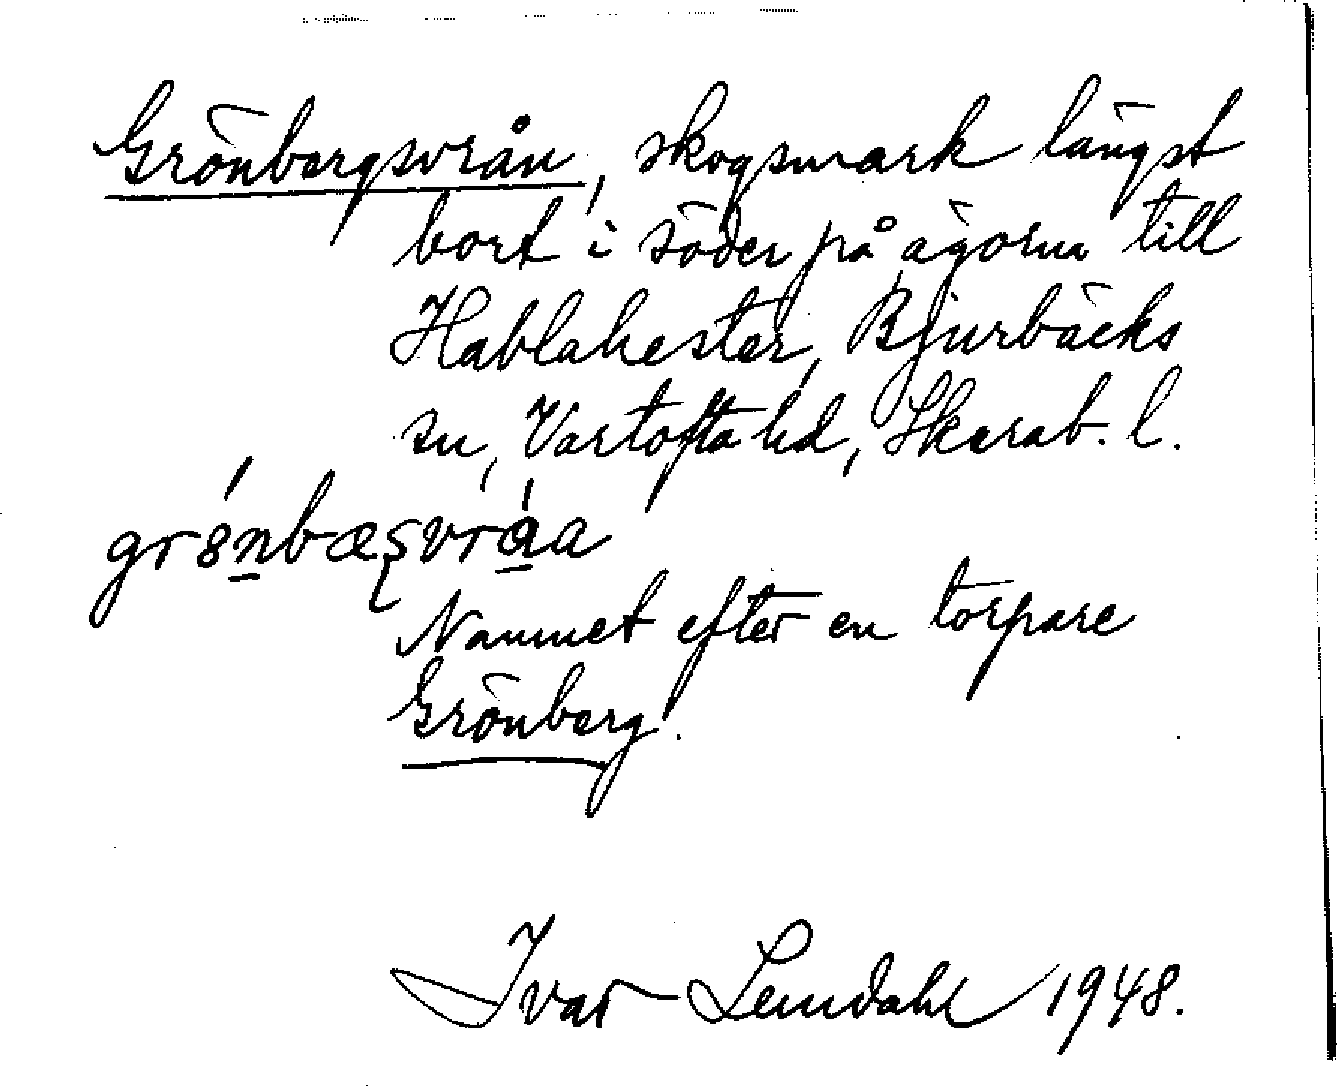 Grönbergsvrån, skogsmark längst
bort i söder på ägorna till
Hablahester, Bjurbäcks
sn, Vartofta hd, Skarab. l.
Namnet efter en torpare
Grönberg.
Ivar Lemdahl 1948.